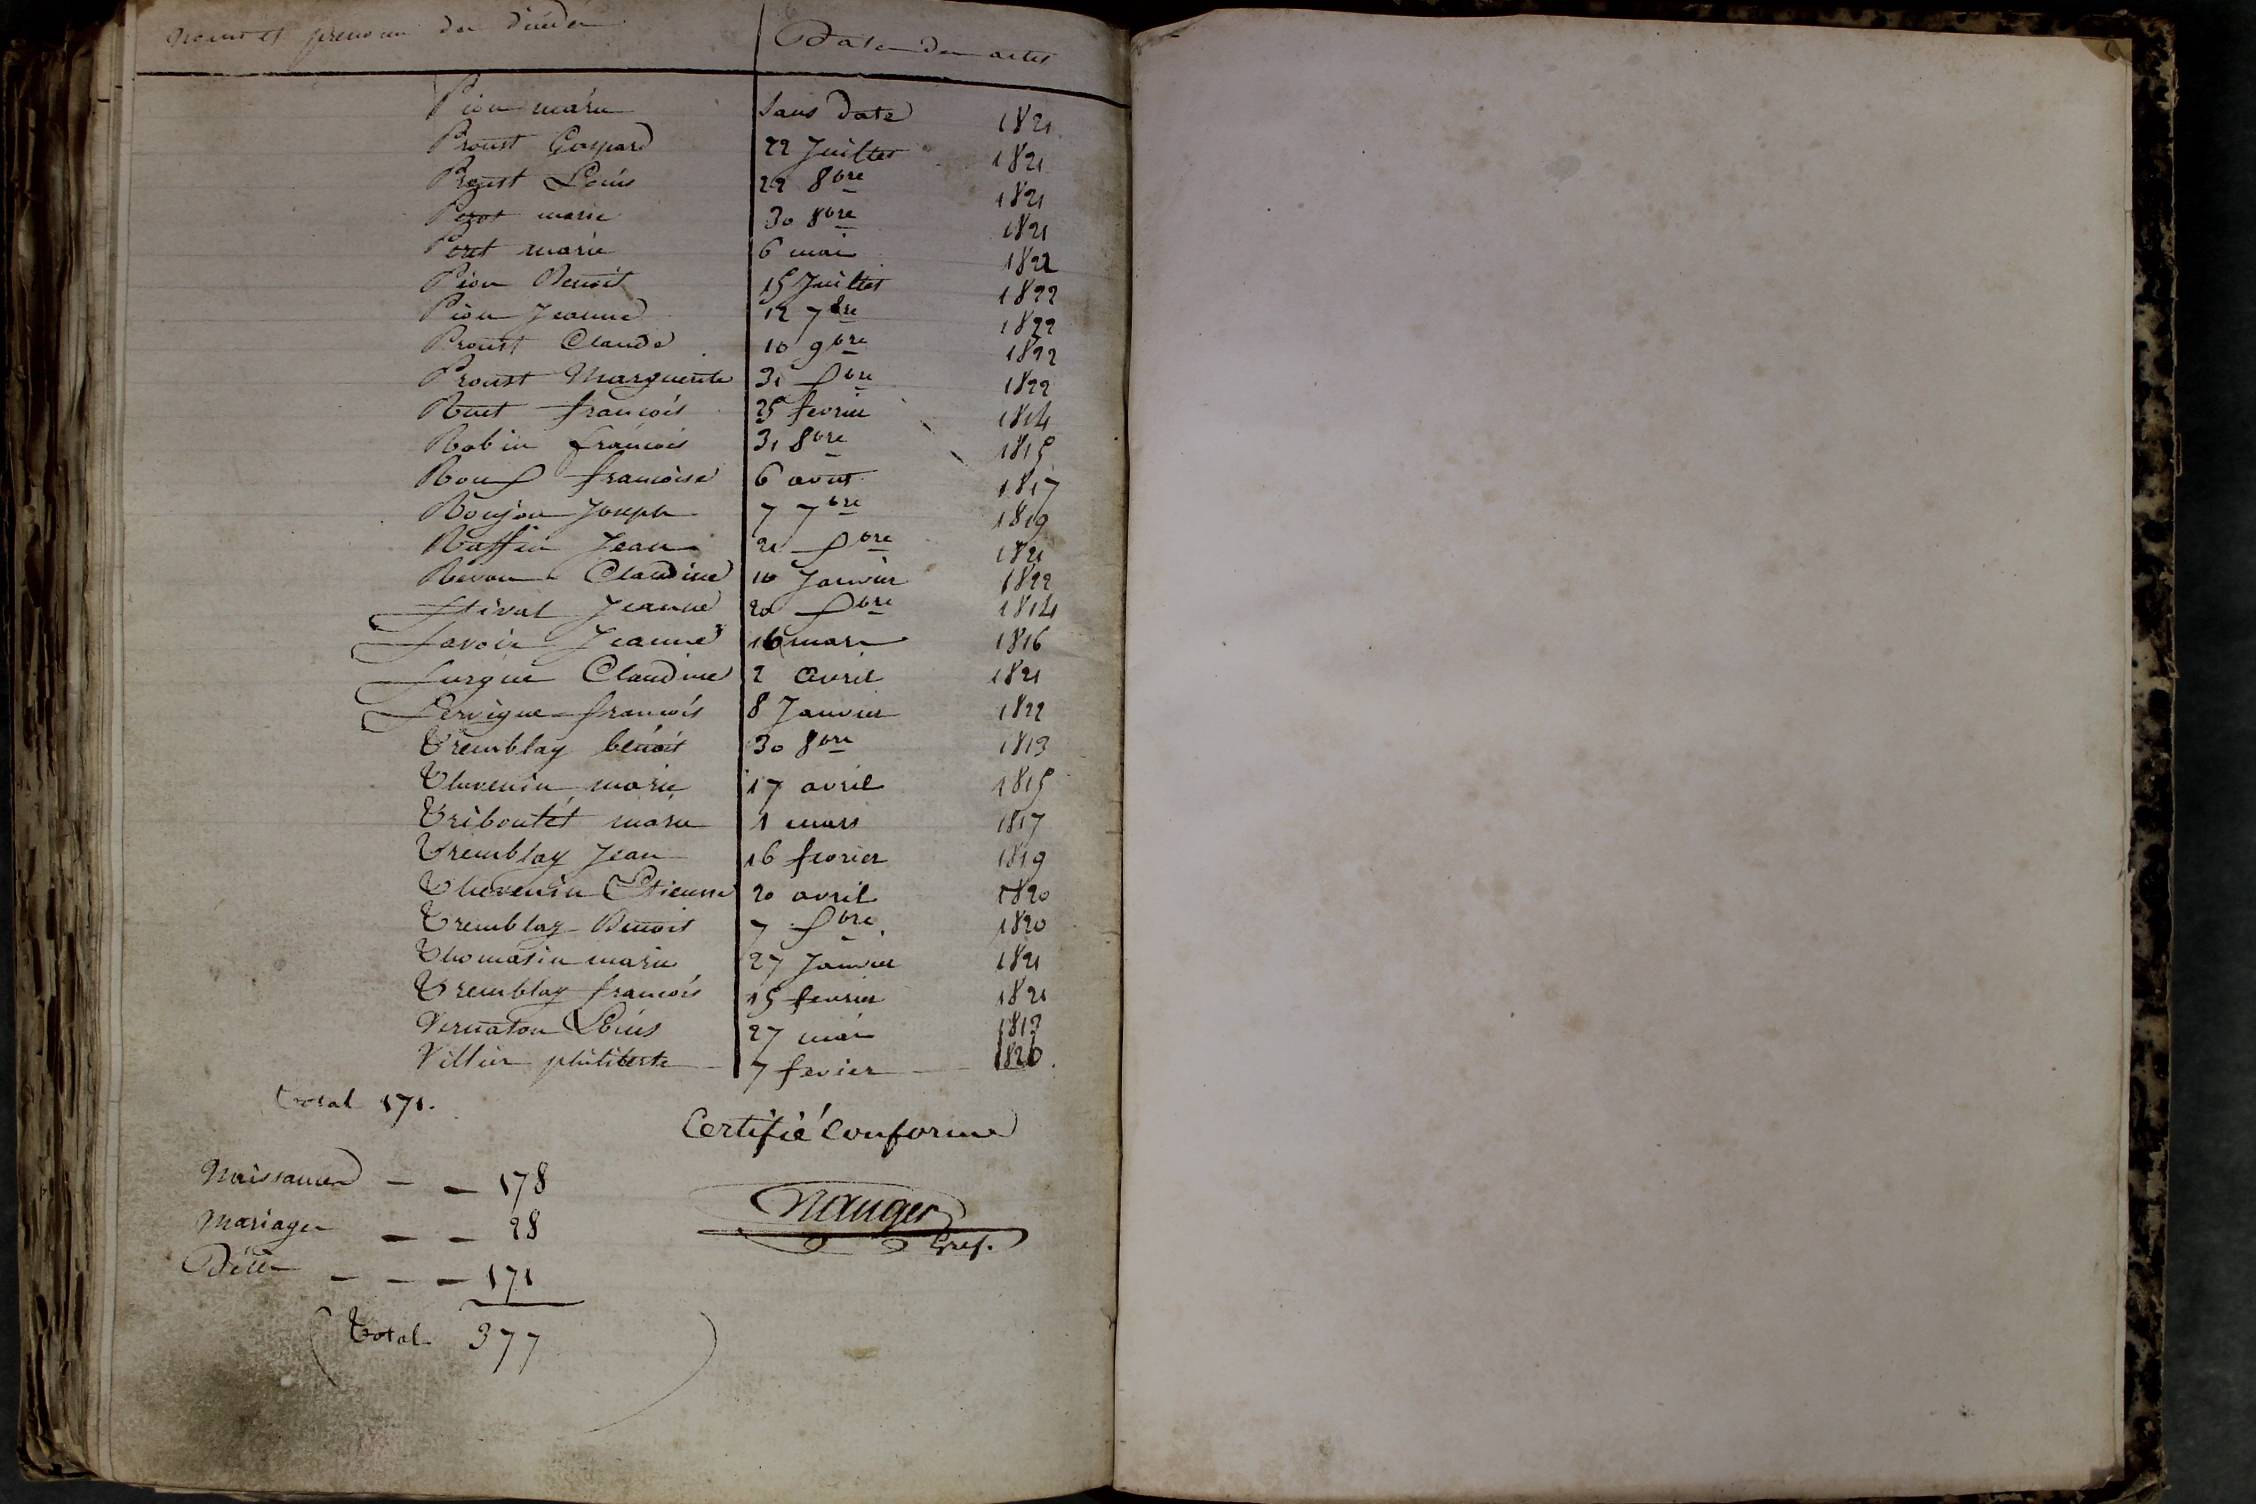 Noms et prenoms des décédés Date des actes
Pion marie Sans Date 1821
Proust Gaspard 22 Juillet 1821
Proust Louis 22 8bre 1821
Perot marie 30 8bre 1821
Peret marie 6 mai 1822
Pion Benoit 15 Juillet 1822
Pion Jeanne 12 7bre 1822
Proust Claude 10 9bre 1822
Proust Marguerite 31 Xbre 1822
Ruet françois 25 fevrier 1814
Robin françois 31 8bre 1815
Roux françoise 6 aout 1817
Boujon Joseph 7 7bre 1819
Raffin Jean 21 Xbre 1821
Revon Claudine 10 Janvier 1822
Stival Jeanne 20 Xbre 1814
Savoie Jeanne 16 mars 1816
Surgue Claudine 2 avril 1821
Servigne françois 8 Janvier 1822
Tremblay benoit 30 8bre 1813
Thevenin marie 17 avril 1815
Triboutét marie 1 mars 1817
Tremblay Jean 16 fevrier 1819
Thevenin Etienne 20 avril 1820
Tremblay Benoit 7 Xbre 1820
Thomasin marie 27 Janvier 1821
Tremblay françois 15 fevrier 1821
Vernaton Louis 27 mai 1813
Villier philiberte 7 fevier 1820
total 171.
Certifié Conforme
Naissances 178
Mariages 28
Mauger
Gref.
Décès 171
Total 377